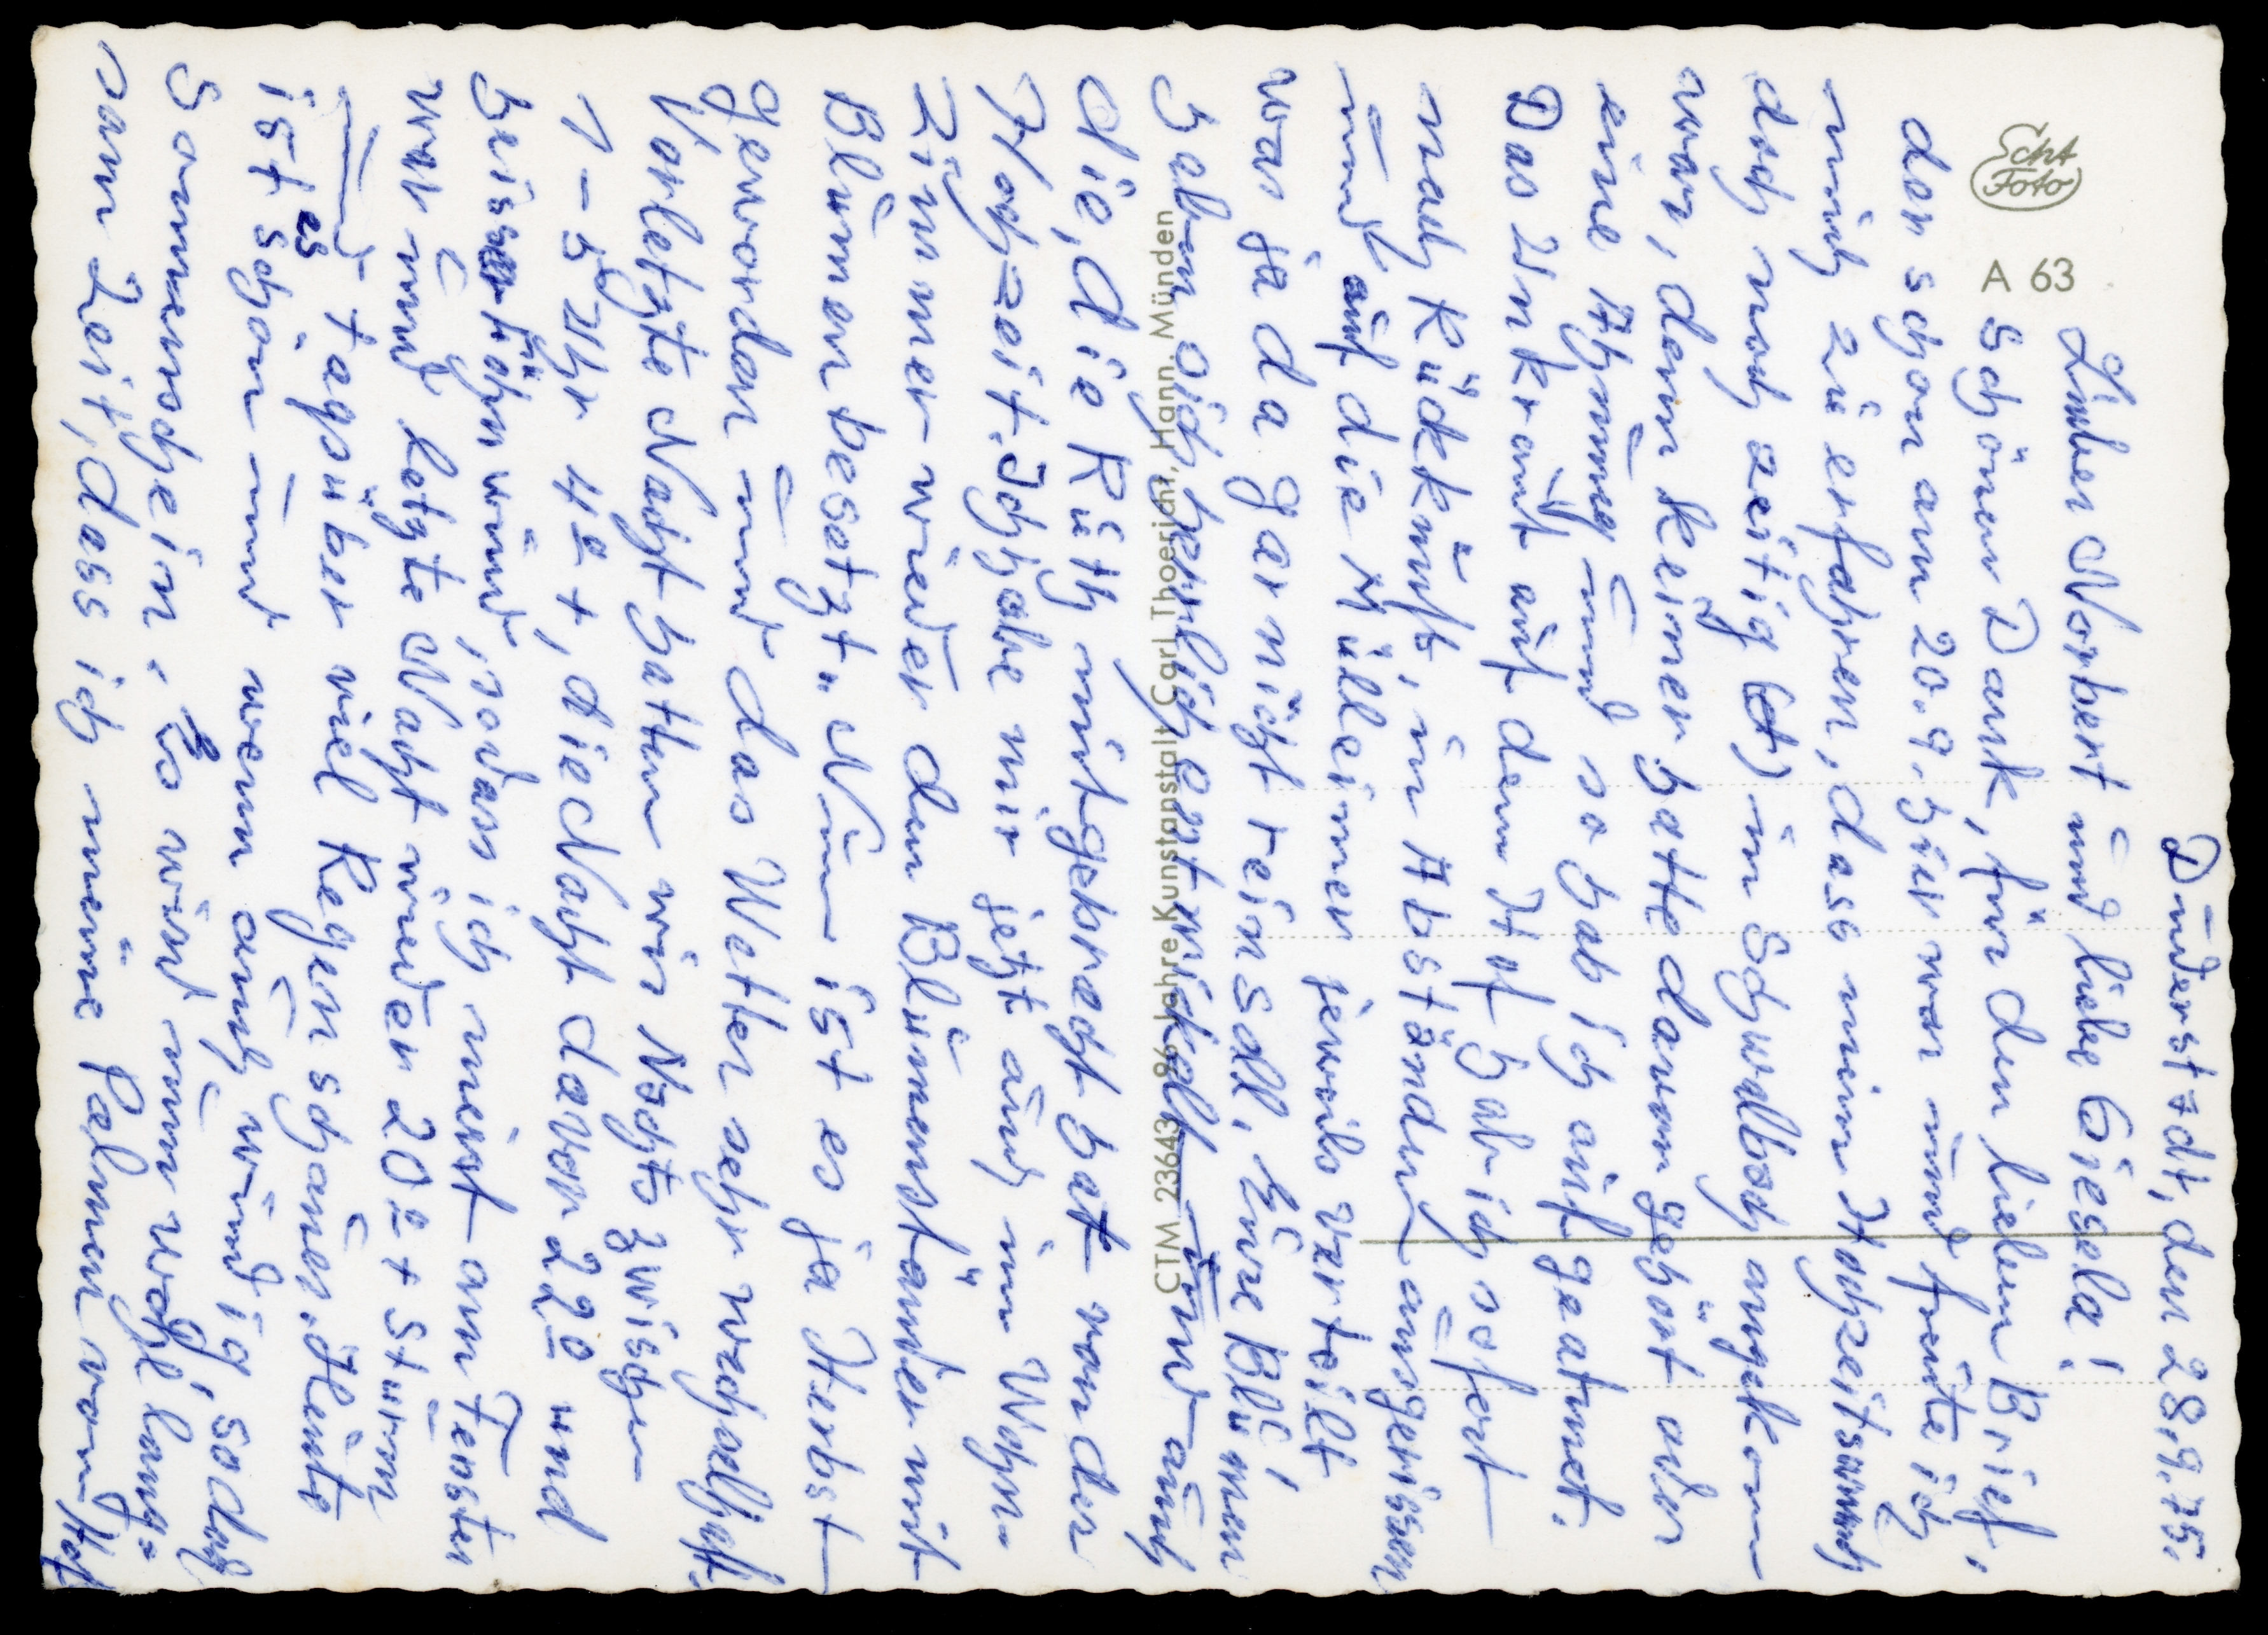 Duderstadt, den 28.9.75.
Lieber Norbert und liebe Giesela!
Schönen Dank, für den lieben Brief,
der schon am 20.9. hier war und freute ich
mich zu erfahren, dass mein Hochzeitswunsch
doch noch zeitig (et) im Schwalboch angekom
war, denn keiner hatte davon gehört oder
eine Ahnung und so hab ich aufgeatmet.
Das Unkraut auf dem Hof hab ich sofort
nach Rückkunft, in Abständen ausgerissen
und auf die Mülleimer jeweils verteilt
was ja da gar nicht rein soll. Eure Blumen
haben sich herrlich entwickelt und auch
die, die Ruth mitgebracht hat von der
Hochzeit. Ich habe mir jetzt auch im Wohn-
zimmer wieder den Blumenständer mit
Blumen besetzt. Nun ist es ja Herbst
geworden und das Wetter sehr wechselhaft.
Vorletzte Nacht hatten wir Nachts zwischen
1-5 Uhr 4° +, die Nacht davor 22° und
heissen Föhnwind, sodass ich meist am Fenster
war und letzte Nacht wieder 20° + Sturm
und tagsüber viel Regenschauer. Heute
ist es schön und wenn auch windig, so doch
Sonnenschein. Es wird nun wohl lang=
sam Zeit, dass ich meine Palmen vom Hof
Echt
Foto
A 63
CTW 23643 86 Jahre Kunstanstalt Carl Thoericht, Hann. Münden